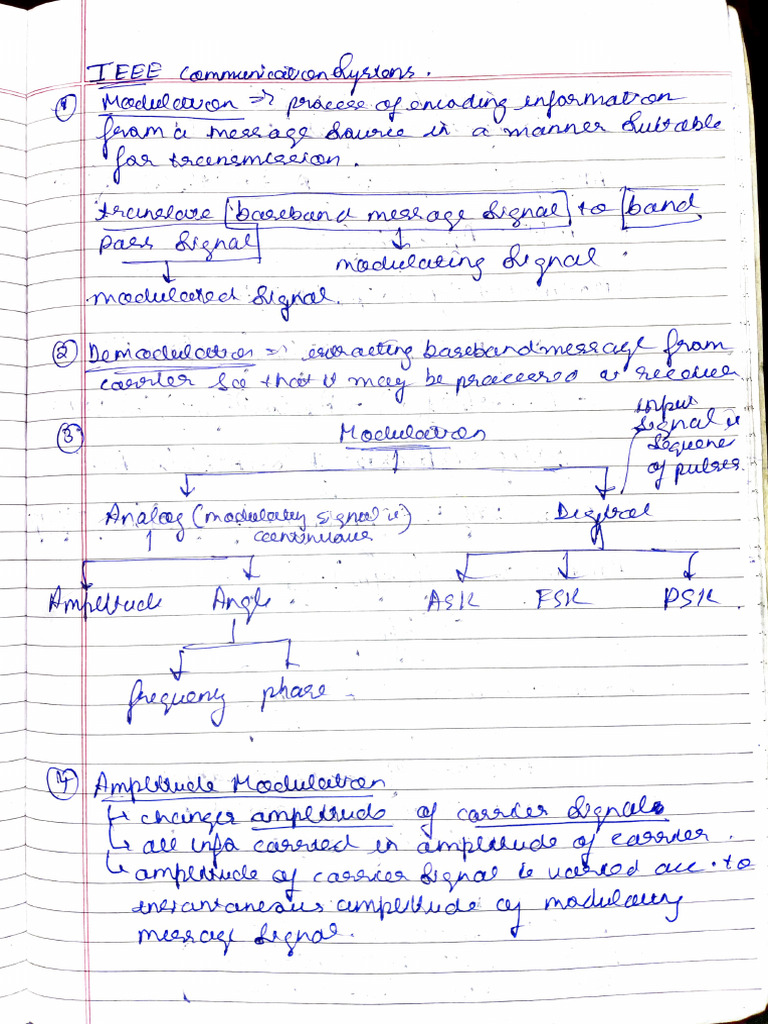 IEEE Communication Systems.
① Modulation => process of encoding information
from a message source in a manner suitable
for transmission.
translate baseband message signal to band
pass signal
modulating signal.
modulated signal.
② Demodulation => extracting baseband message from
carrier so that it may be processed at receiver
③ Modulation
input
signal is
sequence
of pulses
Analog (modulating signal is continuous)
Digital
Amplitude Angle. ASK FSK PSK
frequency phase
④ Amplitude Modulation
changes amplitude of carrier signal.
all info carried in amplitude of carrier.
amplitude of carrier signal is varied acc. to
instantaneous amplitude of modulating
message signal.